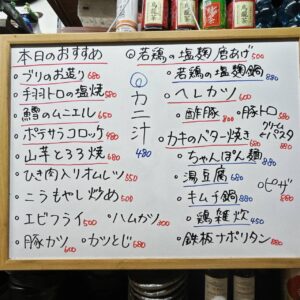 本日のおすすめ
・ブリのお造り 680
・手羽トロの塩焼 680
・鱈のムニエル 650
・ポテサラコロッケ 480
・山芋とろろ焼 680
・ひき肉入りオムレツ 550
・こうもやし炒め 500
・エビフライ 500
・ハムカツ 300
・豚カツ 600
・カツとじ 680
◎カニ汁 480
◎若鶏の塩麹唐あげ 500
・若鶏の塩麹鍋 880
・ヘレカツ 600
・酢豚 800
・豚トロ 580
・カキのバター焼き 680
クリームパスタ 880
・ちゃんぽん麺 880
・湯豆腐 680
・ピザ 680
・キムチ鍋 880
・鶏雑炊 450
・鉄板ナポリタン 880